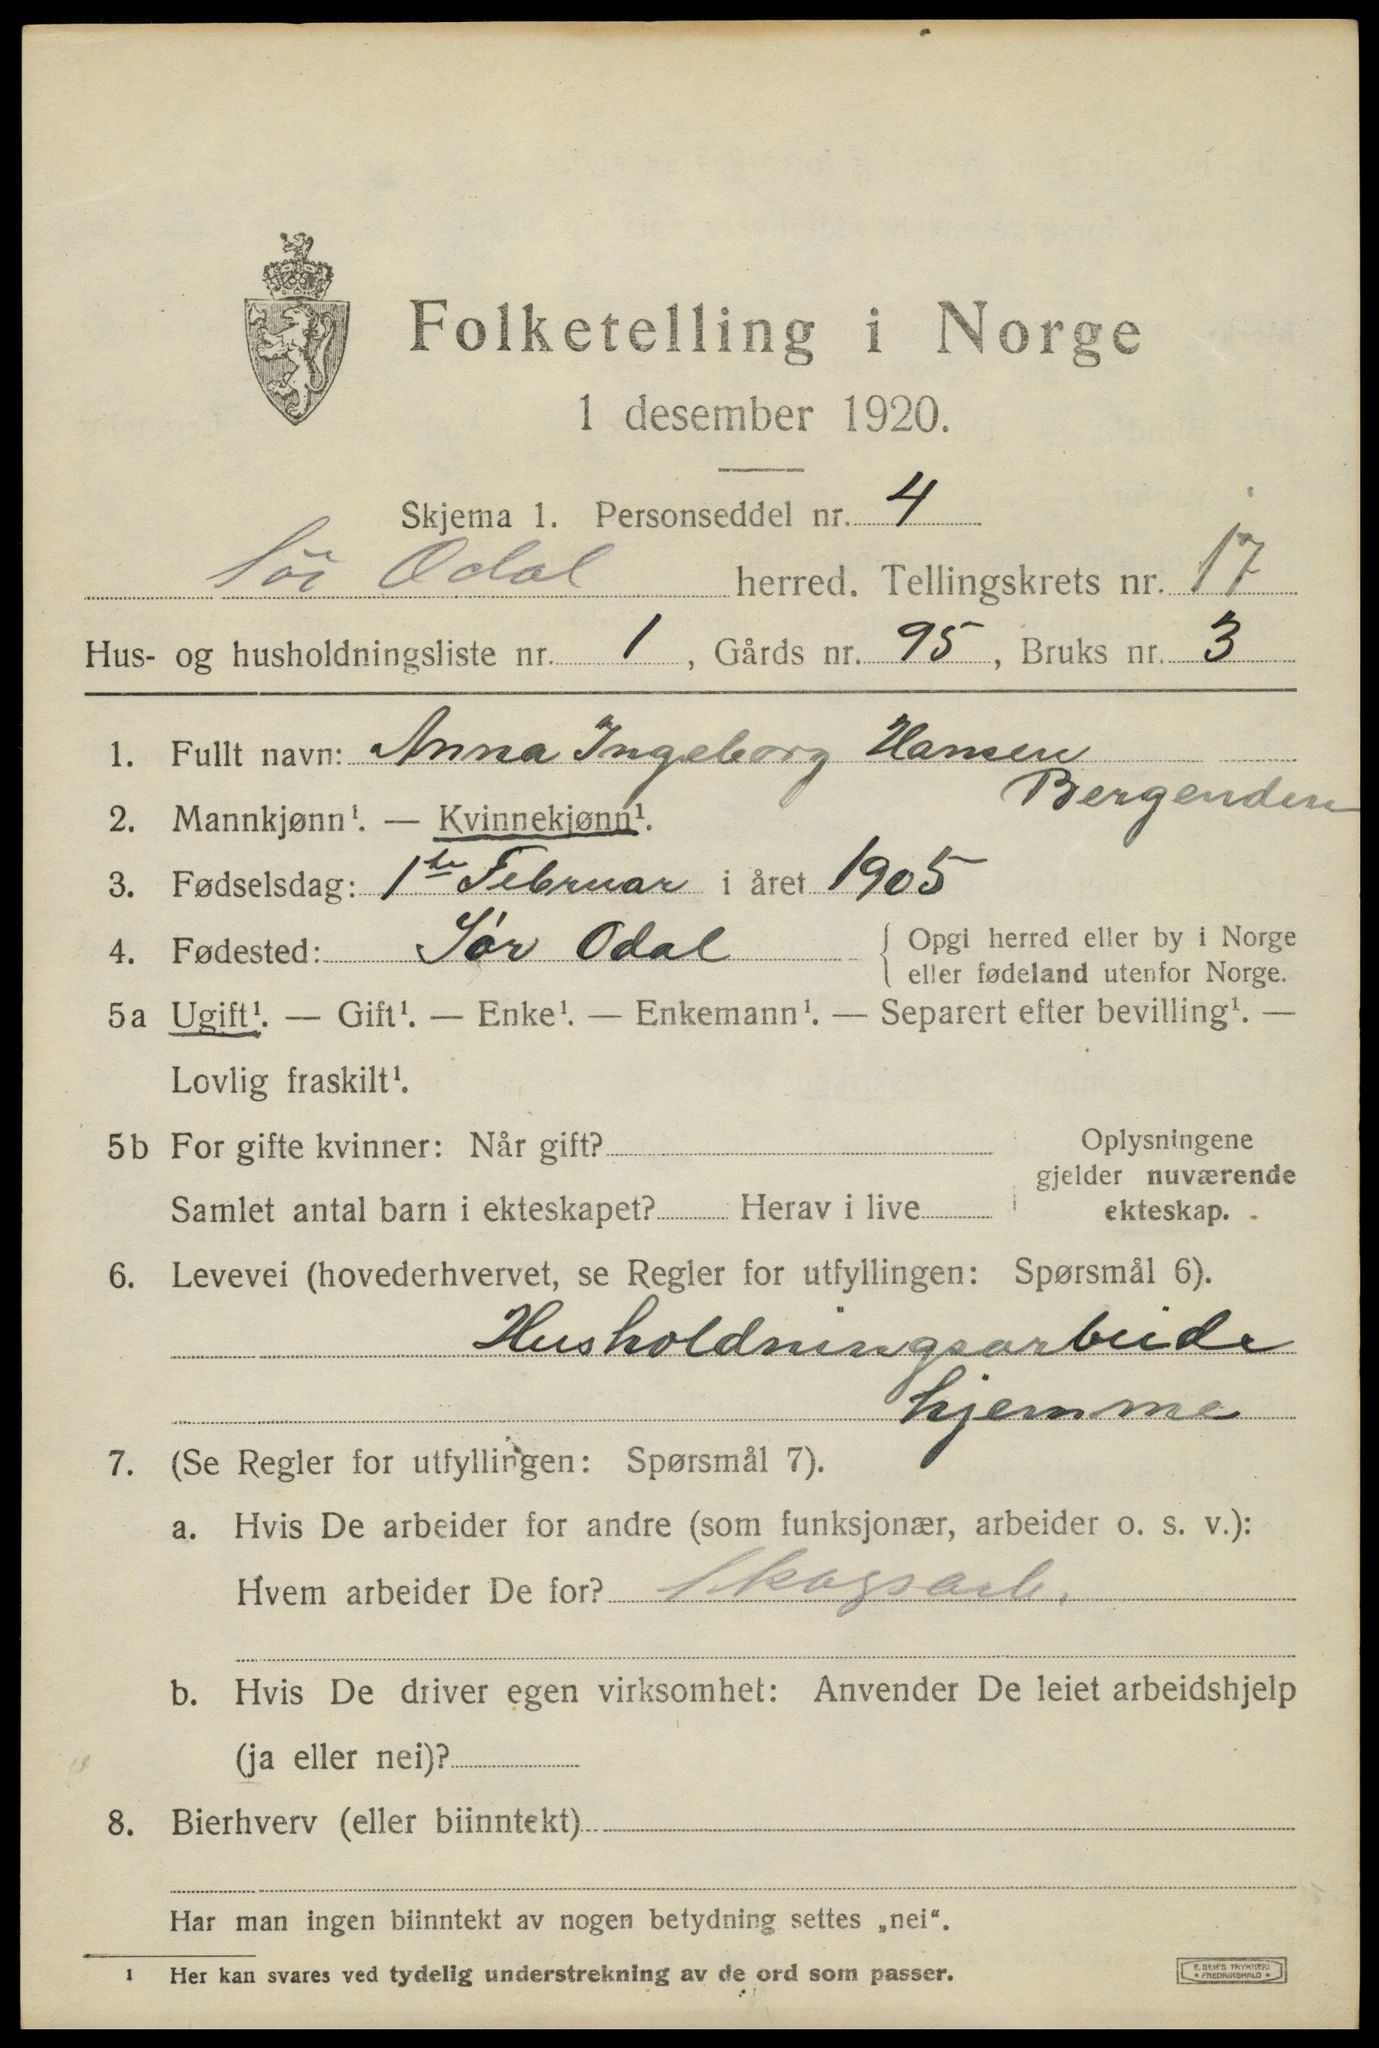 Folketelling i Norge
1 desember 1920.
Skjema 1. Personseddel nr. 4
Sør Odal herred. Tellingskrets nr. 17
Hus- og husholdningsliste nr. 1, Gårds nr. 95, Bruks nr. 3
1. Fullt navn: Anna Ingeborg Hansen
Bergenden
2. Mannkjønn¹. — Kvinnekjønn¹.
3. Fødselsdag: 1ste Februar i året 1905
4. Fødested: Sør Odal { Opgi herred eller by i Norge
eller fødeland utenfor Norge.
5a Ugift¹. — Gift¹. — Enke¹. — Enkemann¹. — Separert efter bevilling¹. —
Lovlig fraskilt¹.
5b For gifte kvinner: Når gift?
Samlet antal barn i ekteskapet? Herav i live
Oplysningene
gjelder nuværende
ekteskap.
6. Levevei (hovederhvervet, se Regler for utfyllingen: Spørsmål 6).
Husholdningsarbeide
hjemme
7. (Se Regler for utfyllingen: Spørsmål 7).
a. Hvis De arbeider for andre (som funksjonær, arbeider o. s. v.):
Hvem arbeider De for? Skogsarb.
b. Hvis De driver egen virksomhet: Anvender De leiet arbeidshjelp
(ja eller nei)?
8. Bierhverv (eller biinntekt)
Har man ingen biinntekt av nogen betydning settes „nei“.
¹ Her kan svares ved tydelig understrekning av de ord som passer.
E. SEM'S TRYKKERI
• FREDRIKSHALD •